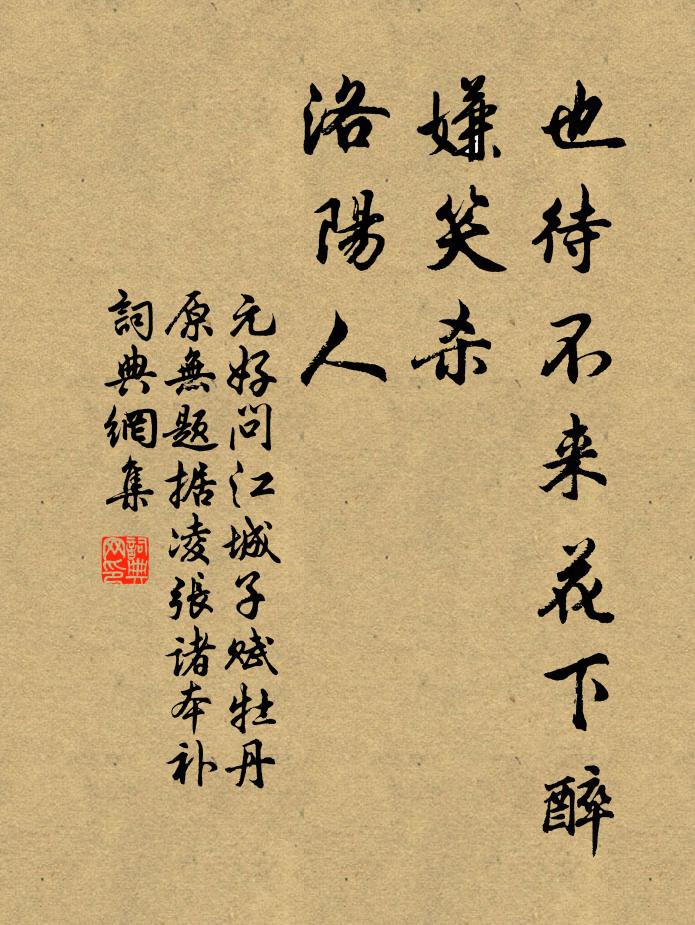 也待不来花下醉
嫌笑杀
洛陽人
元好问江城子赋牡丹
原無题据凌張诸本补
詞典網集
詞典网印